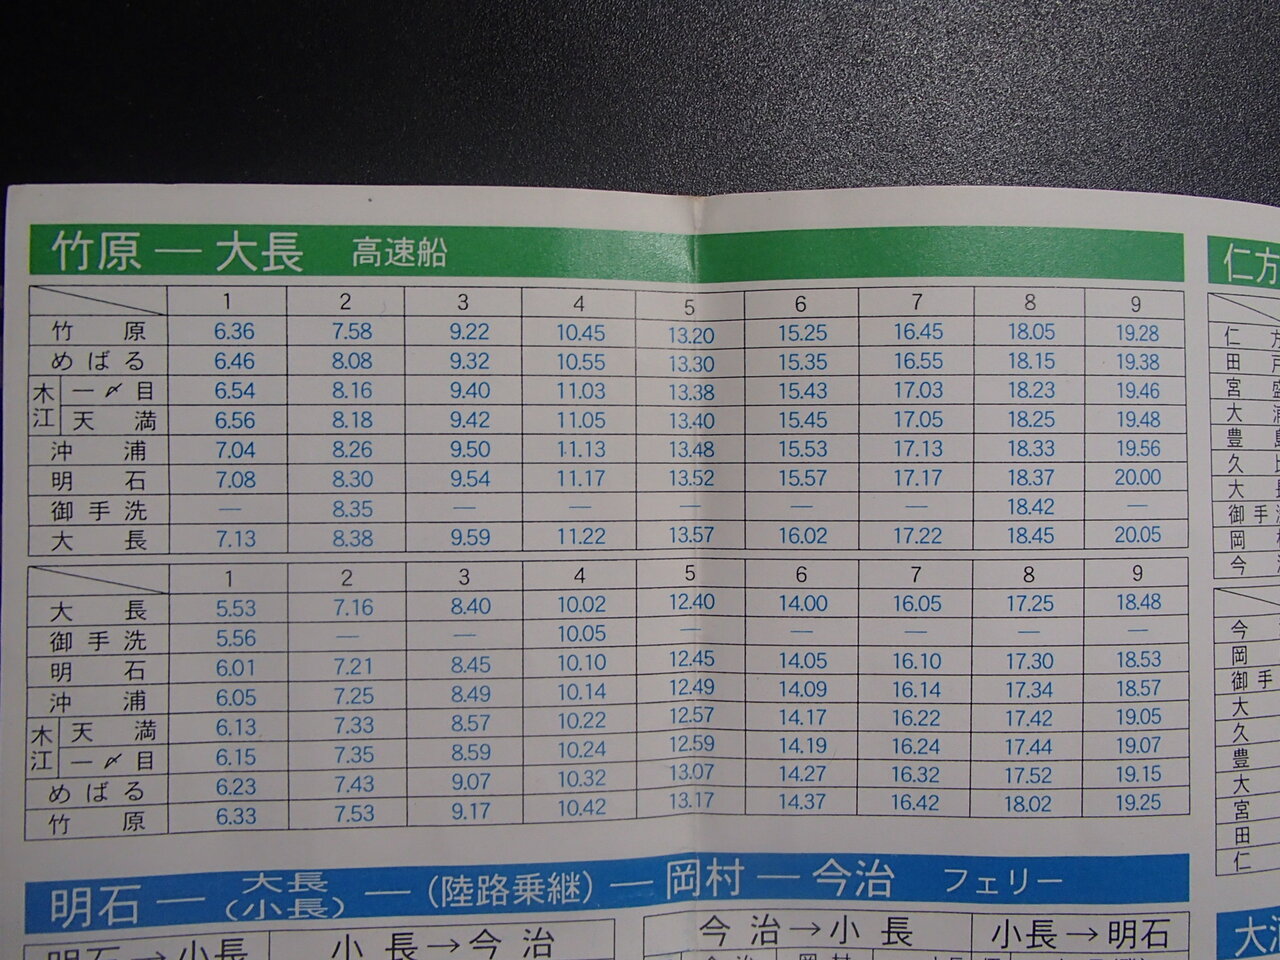 竹原 ― 大長 高速船
1 2 3 4 5 6 7 8 9
竹原 6.36 7.58 9.22 10.45 13.20 15.25 16.45 18.05 19.28
めばる 6.46 8.08 9.32 10.55 13.30 15.35 16.55 18.15 19.38
木江 一〆目 6.54 8.16 9.40 11.03 13.38 15.43 17.03 18.23 19.46
天満 6.56 8.18 9.42 11.05 13.40 15.45 17.05 18.25 19.48
沖浦 7.04 8.26 9.50 11.13 13.48 15.53 17.13 18.33 19.56
明石 7.08 8.30 9.54 11.17 13.52 15.57 17.17 18.37 20.00
御手洗 ― 8.35 ― ― ― ― ― 18.42 ―
大長 7.13 8.38 9.59 11.22 13.57 16.02 17.22 18.45 20.05
1 2 3 4 5 6 7 8 9
大長 5.53 7.16 8.40 10.02 12.40 14.00 16.05 17.25 18.48
御手洗 5.56 ― ― 10.05 ― ― ― ― ―
明石 6.01 7.21 8.45 10.10 12.45 14.05 16.10 17.30 18.53
沖浦 6.05 7.25 8.49 10.14 12.49 14.09 16.14 17.34 18.57
木江 天満 6.13 7.33 8.57 10.22 12.57 14.17 16.22 17.42 19.05
一〆目 6.15 7.35 8.59 10.24 12.59 14.19 16.24 17.44 19.07
めばる 6.23 7.43 9.07 10.32 13.07 14.27 16.32 17.52 19.15
竹原 6.33 7.53 9.17 10.42 13.17 14.37 16.42 18.02 19.25
明石 ― 大長(小長) ― (陸路乗継) ― 岡村 ― 今治 フェリー
明石→小長 小長→今治
今治→小長 小長→明石
仁方
仁
田
宮
大
豊
久
大
御手洗
岡
今
今
岡
御手
大
久
豊
大
宮
田
仁
大